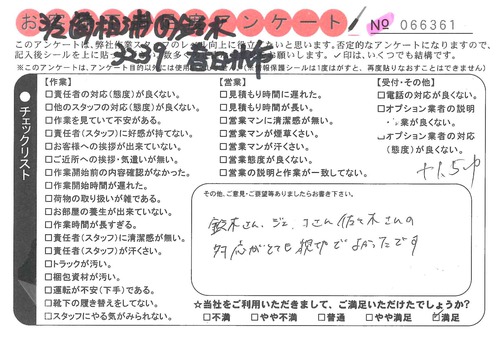 アンケート
№ 066361
このアンケートは、弊社作業スタッフのレベル向上に役立てたいと思います。否定的なアンケートになりますので、
記入後シールを上に貼って
お願いします。✓印は、いくつでも結構です。
※このアンケートは、アンケート目的以外には使用
保護シールは1度はがすと、再度貼りなおすことはできません)
チェックリスト
【作業】
□責任者の対応(態度)が良くない。
□他のスタッフの対応(態度)が良くない。
□作業を見ていて不安がある。
□責任者(スタッフ)に好感が持てない。
□お客様への挨拶が出来ていない。
□ご近所への挨拶・気遣いが無い。
□作業開始前の内容確認がなかった。
□作業開始時間が遅れた。
□荷物の取り扱いが雑である。
□お部屋の養生が出来ていない。
□作業時間が長すぎる。
□責任者(スタッフ)に清潔感が無い。
□責任者(スタッフ)が汗くさい。
□トラックが汚い。
□梱包資材が汚い。
□運転が不安(下手)である。
□靴下の履き替えをしてない。
□スタッフにやる気がみられない。
【営業】
□見積もり時間に遅れた。
□見積もり時間が長い。
□営業マンに清潔感が無い。
□営業マンが煙草くさい。
□営業マンが汗くさい。
□営業態度が良くない。
□営業の説明と作業が一致してない。
【受付・その他】
□電話の対応が良くない。
□オプション業者の説明
・業が良くない。
□オプション業者の対応
(態度)が良くない。
その他、ご意見・ご要望等ありましたらお書き下さい。
鈴木さん、ジェ
コさん佐々木さんの
対応がとても親切でよかったです
☆当社をご利用いただきまして、ご満足いただけたでしょうか?
□不満 □やや不満 □普通 □やや満足 ☑満足